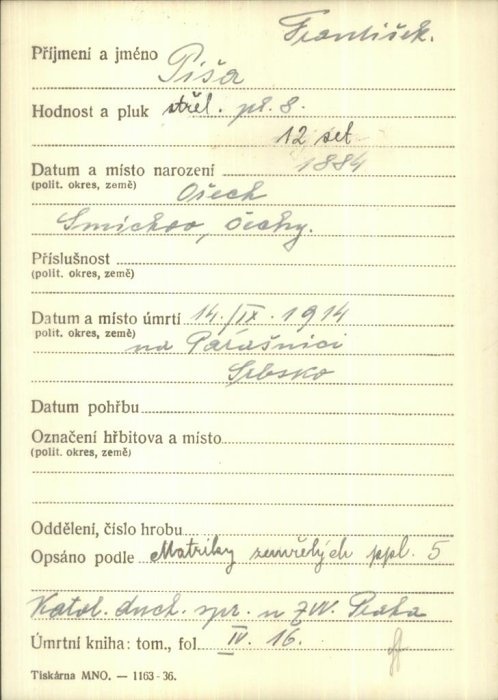 František.
Příjmení a jméno Píša
Hodnost a pluk střel. pl. 8.
12 set
Datum a místo narození 1884
(polit. okres, země) Ořech
Smíchov, Čechy.
Příslušnost
(polit. okres, země)
Datum a místo úmrtí 14./IX. 1914
polit. okres, země) na Parašnici
Srbsko
Datum pohřbu
Označení hřbitova a místo
(polit. okres, země)
Oddělení, číslo hrobu
Opsáno podle Matriky zemřelých ppl. 5
Katol. duch. spr. u ZVV. Praha
Úmrtní kniha: tom., fol. IV. 16.
Tiskárna MNO. — 1163-36.